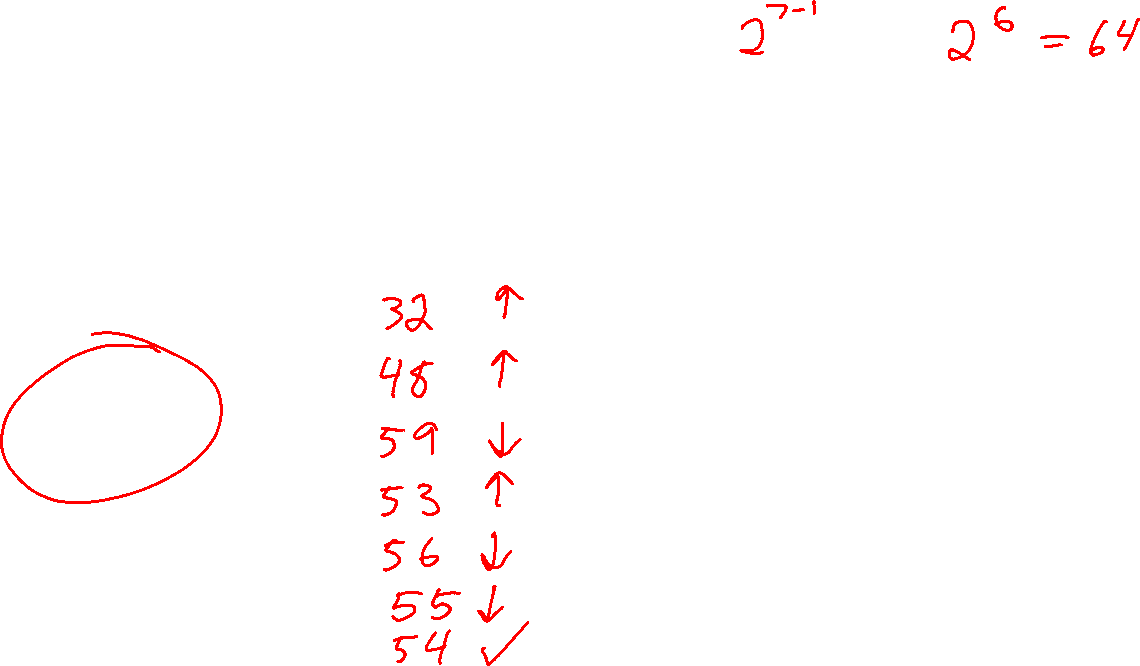 2^{7-1} 2^6 = 64
32 ↑
48 ↑
59 ↓
53 ↑
56 ↓
55 ↓
54 ✓